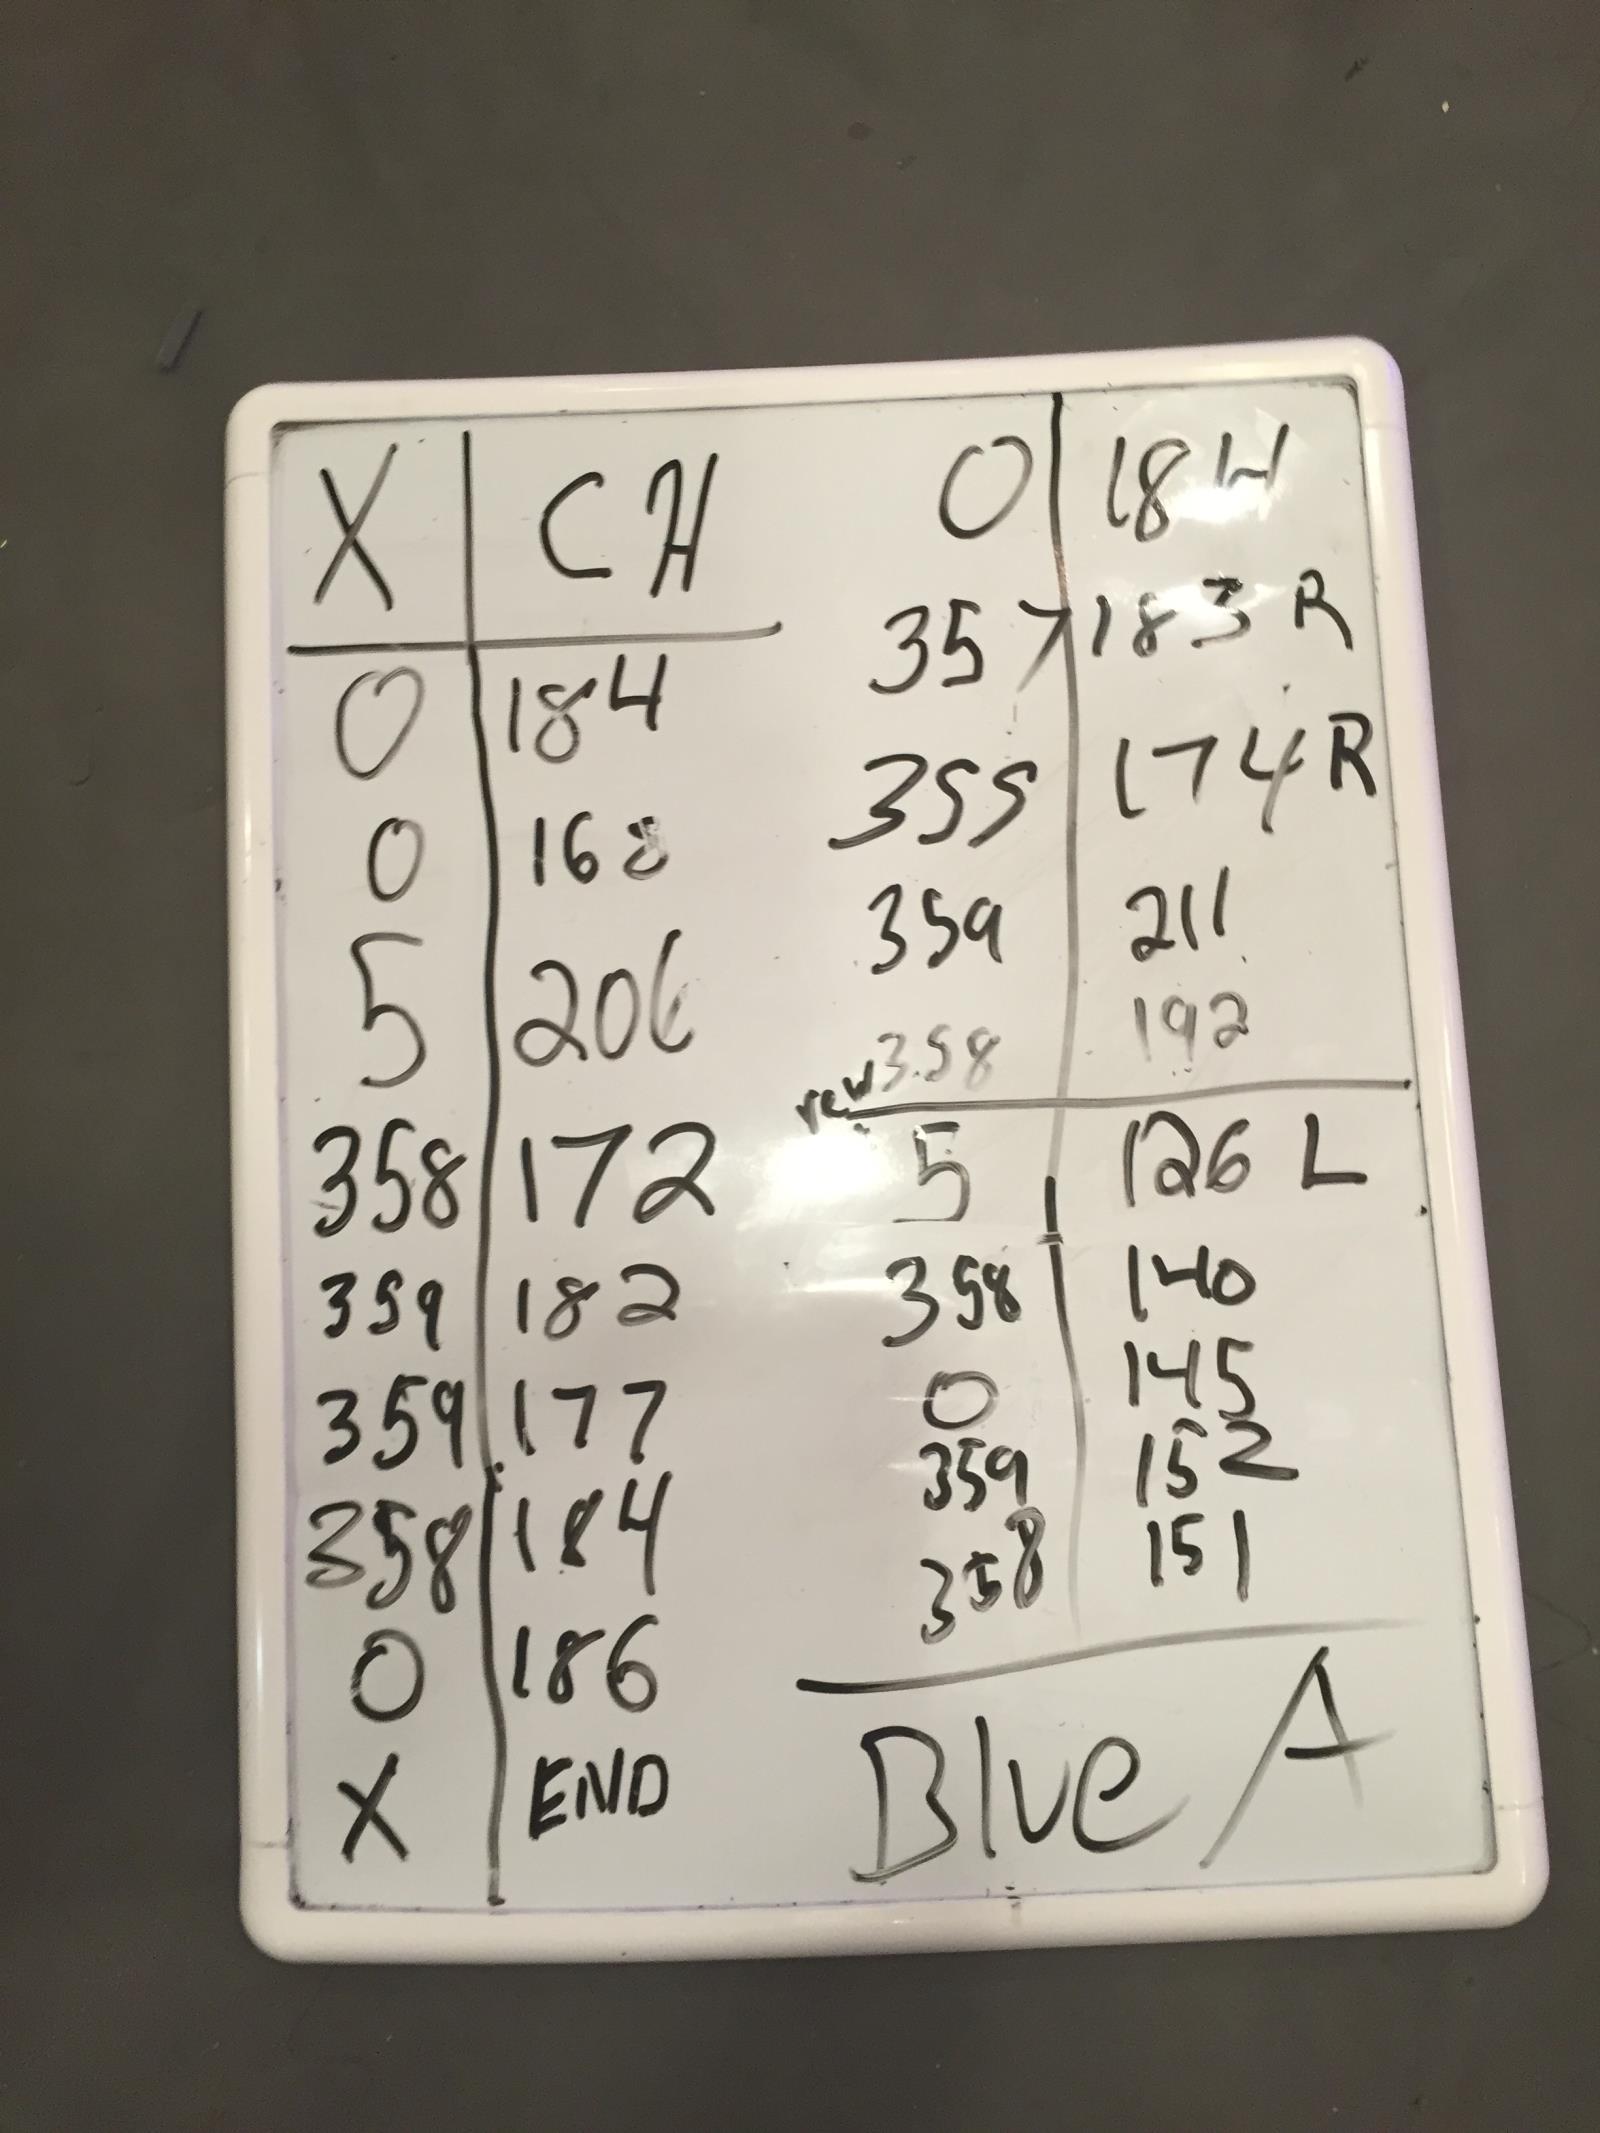 X CH
0 184
0 168
5 206
358 172
359 182
359 177
358 184
0 186
X END
0 184
357 183 R
355 174 R
359 211
358 192
rew
5 126 L
358 140
0 145
359 152
358 151
Blue A